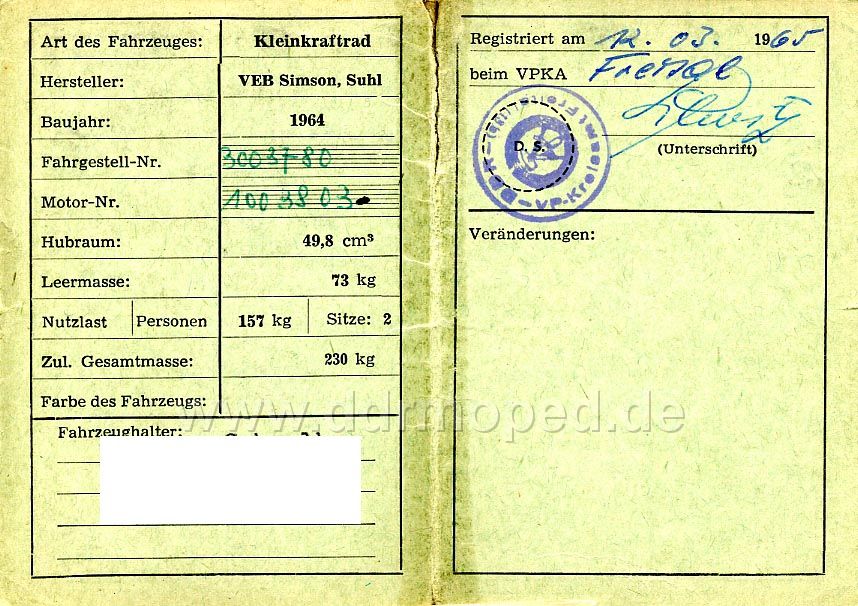 Art des Fahrzeuges: Kleinkraftrad
Hersteller: VEB Simson, Suhl
Baujahr: 1964
Fahrgestell-Nr. 3003780
Motor-Nr. 1003803
Hubraum: 49,8 cm³
Leermasse: 73 kg
Nutzlast Personen 157 kg Sitze: 2
Zul. Gesamtmasse: 230 kg
Farbe des Fahrzeugs:
Fahrzeughalter:
Registriert am 12. 03. 1965
beim VPKA Freital
D. S.
(Unterschrift)
DDR – VP-Kreisamt Freital
Veränderungen:
www.ddrmoped.de